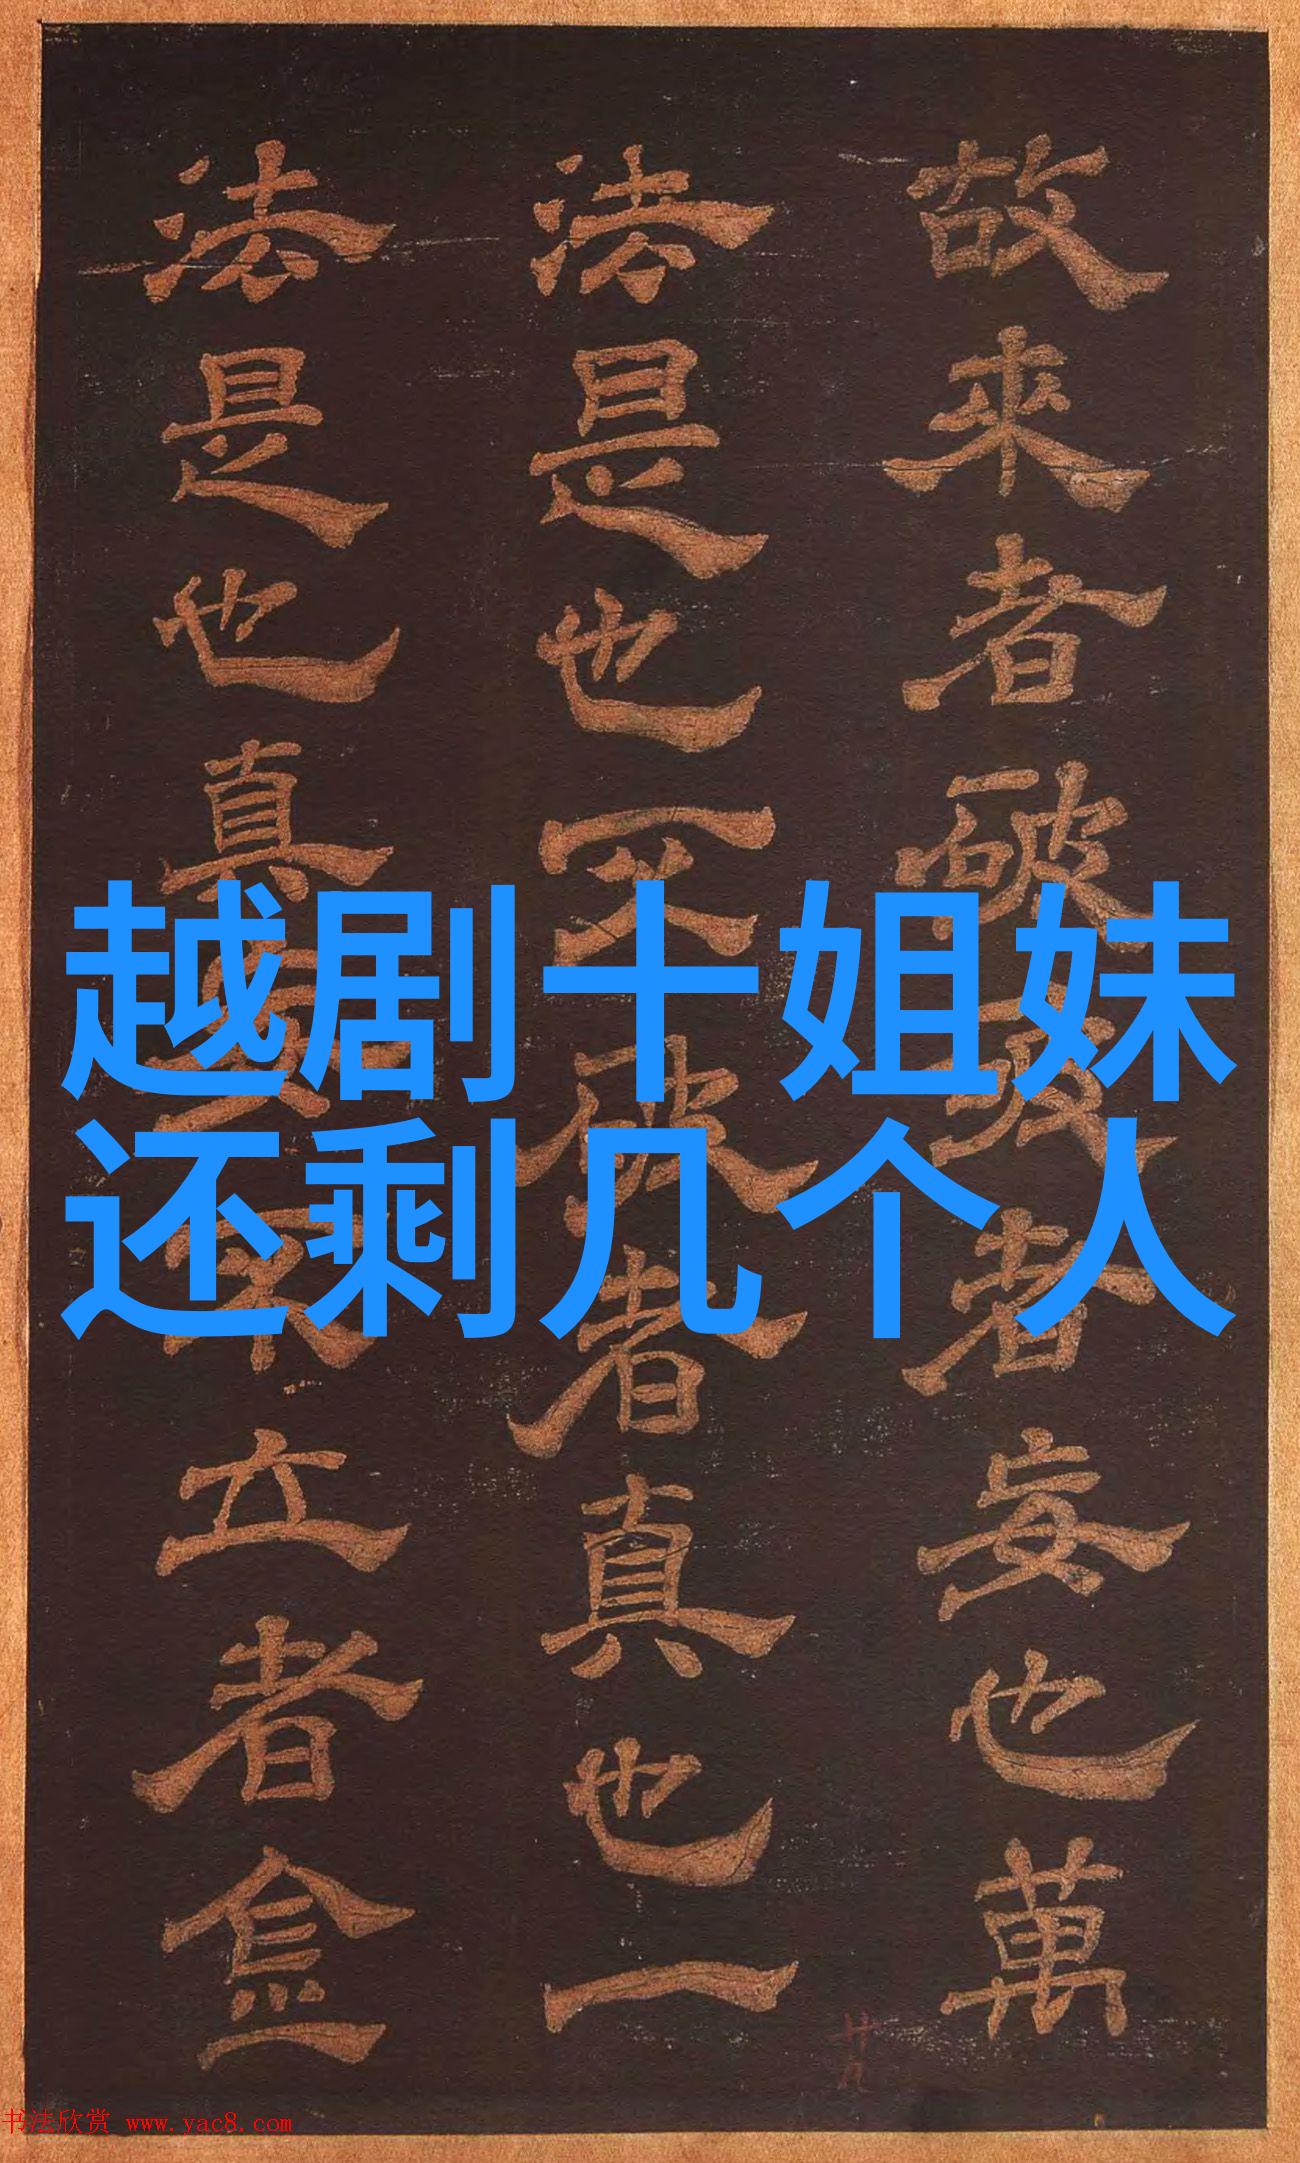 故來者破者妄也萬
法是也不破者真也一
法是也真不立者
越剧十姐妹
还剩几个人
书法欣赏 www.yac8.com